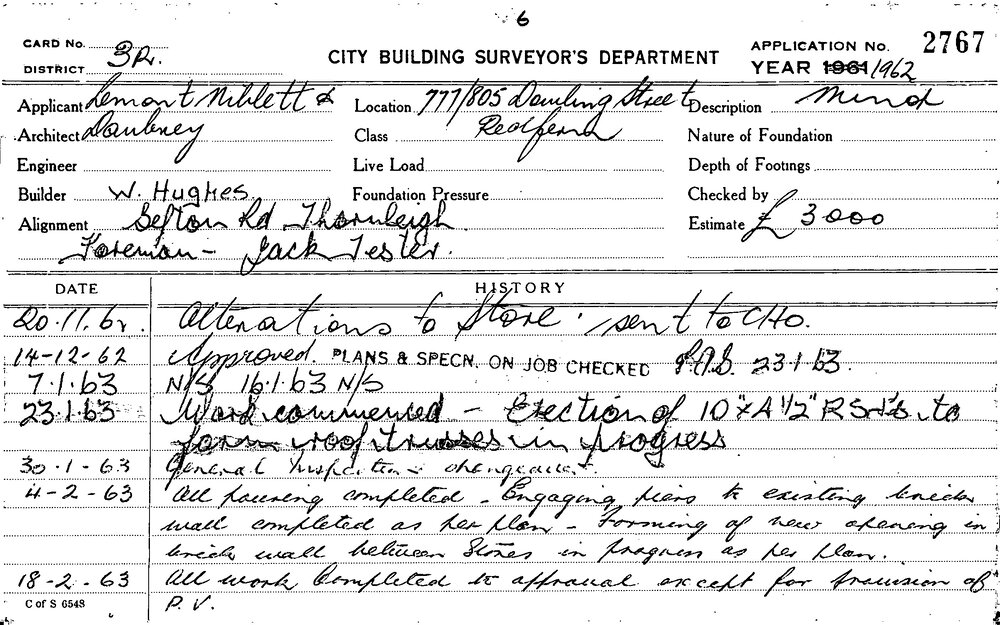 6
CARD No. 3R. CITY BUILDING SURVEYOR'S DEPARTMENT APPLICATION No. 2767
DISTRICT YEAR 1961/1962
Applicant Lemont Niblett & Location 777/805 Dowling Street Description Mind
Architect Daubney Class Redfern Nature of Foundation
Engineer Live Load Depth of Footings
Builder W. Hughes. Foundation Pressure Checked by
Alignment Sefton Rd Thornleigh Estimate £ 3000
Foreman - Jack Tester.
DATE HISTORY
20.11.62. Alterations to Store. sent to CHO.
14-12-62 Approved. PLANS & SPECN. ON JOB CHECKED 23.1.63.
7.1.63 N/S 16.1.63 N/S
23.1.63 Work commenced - Erection of 10"x4 1/2" RSJ's to
form roof trusses in progress
30.1-63 General Inspection
4-2-63 All pouring completed - Engaging piers to existing brick
wall completed as per plan - Forming of new opening in
brick wall between Stores in progress as per plan.
18-2-63 All work Completed to approval except for provision of
C of S 6548 P.V.